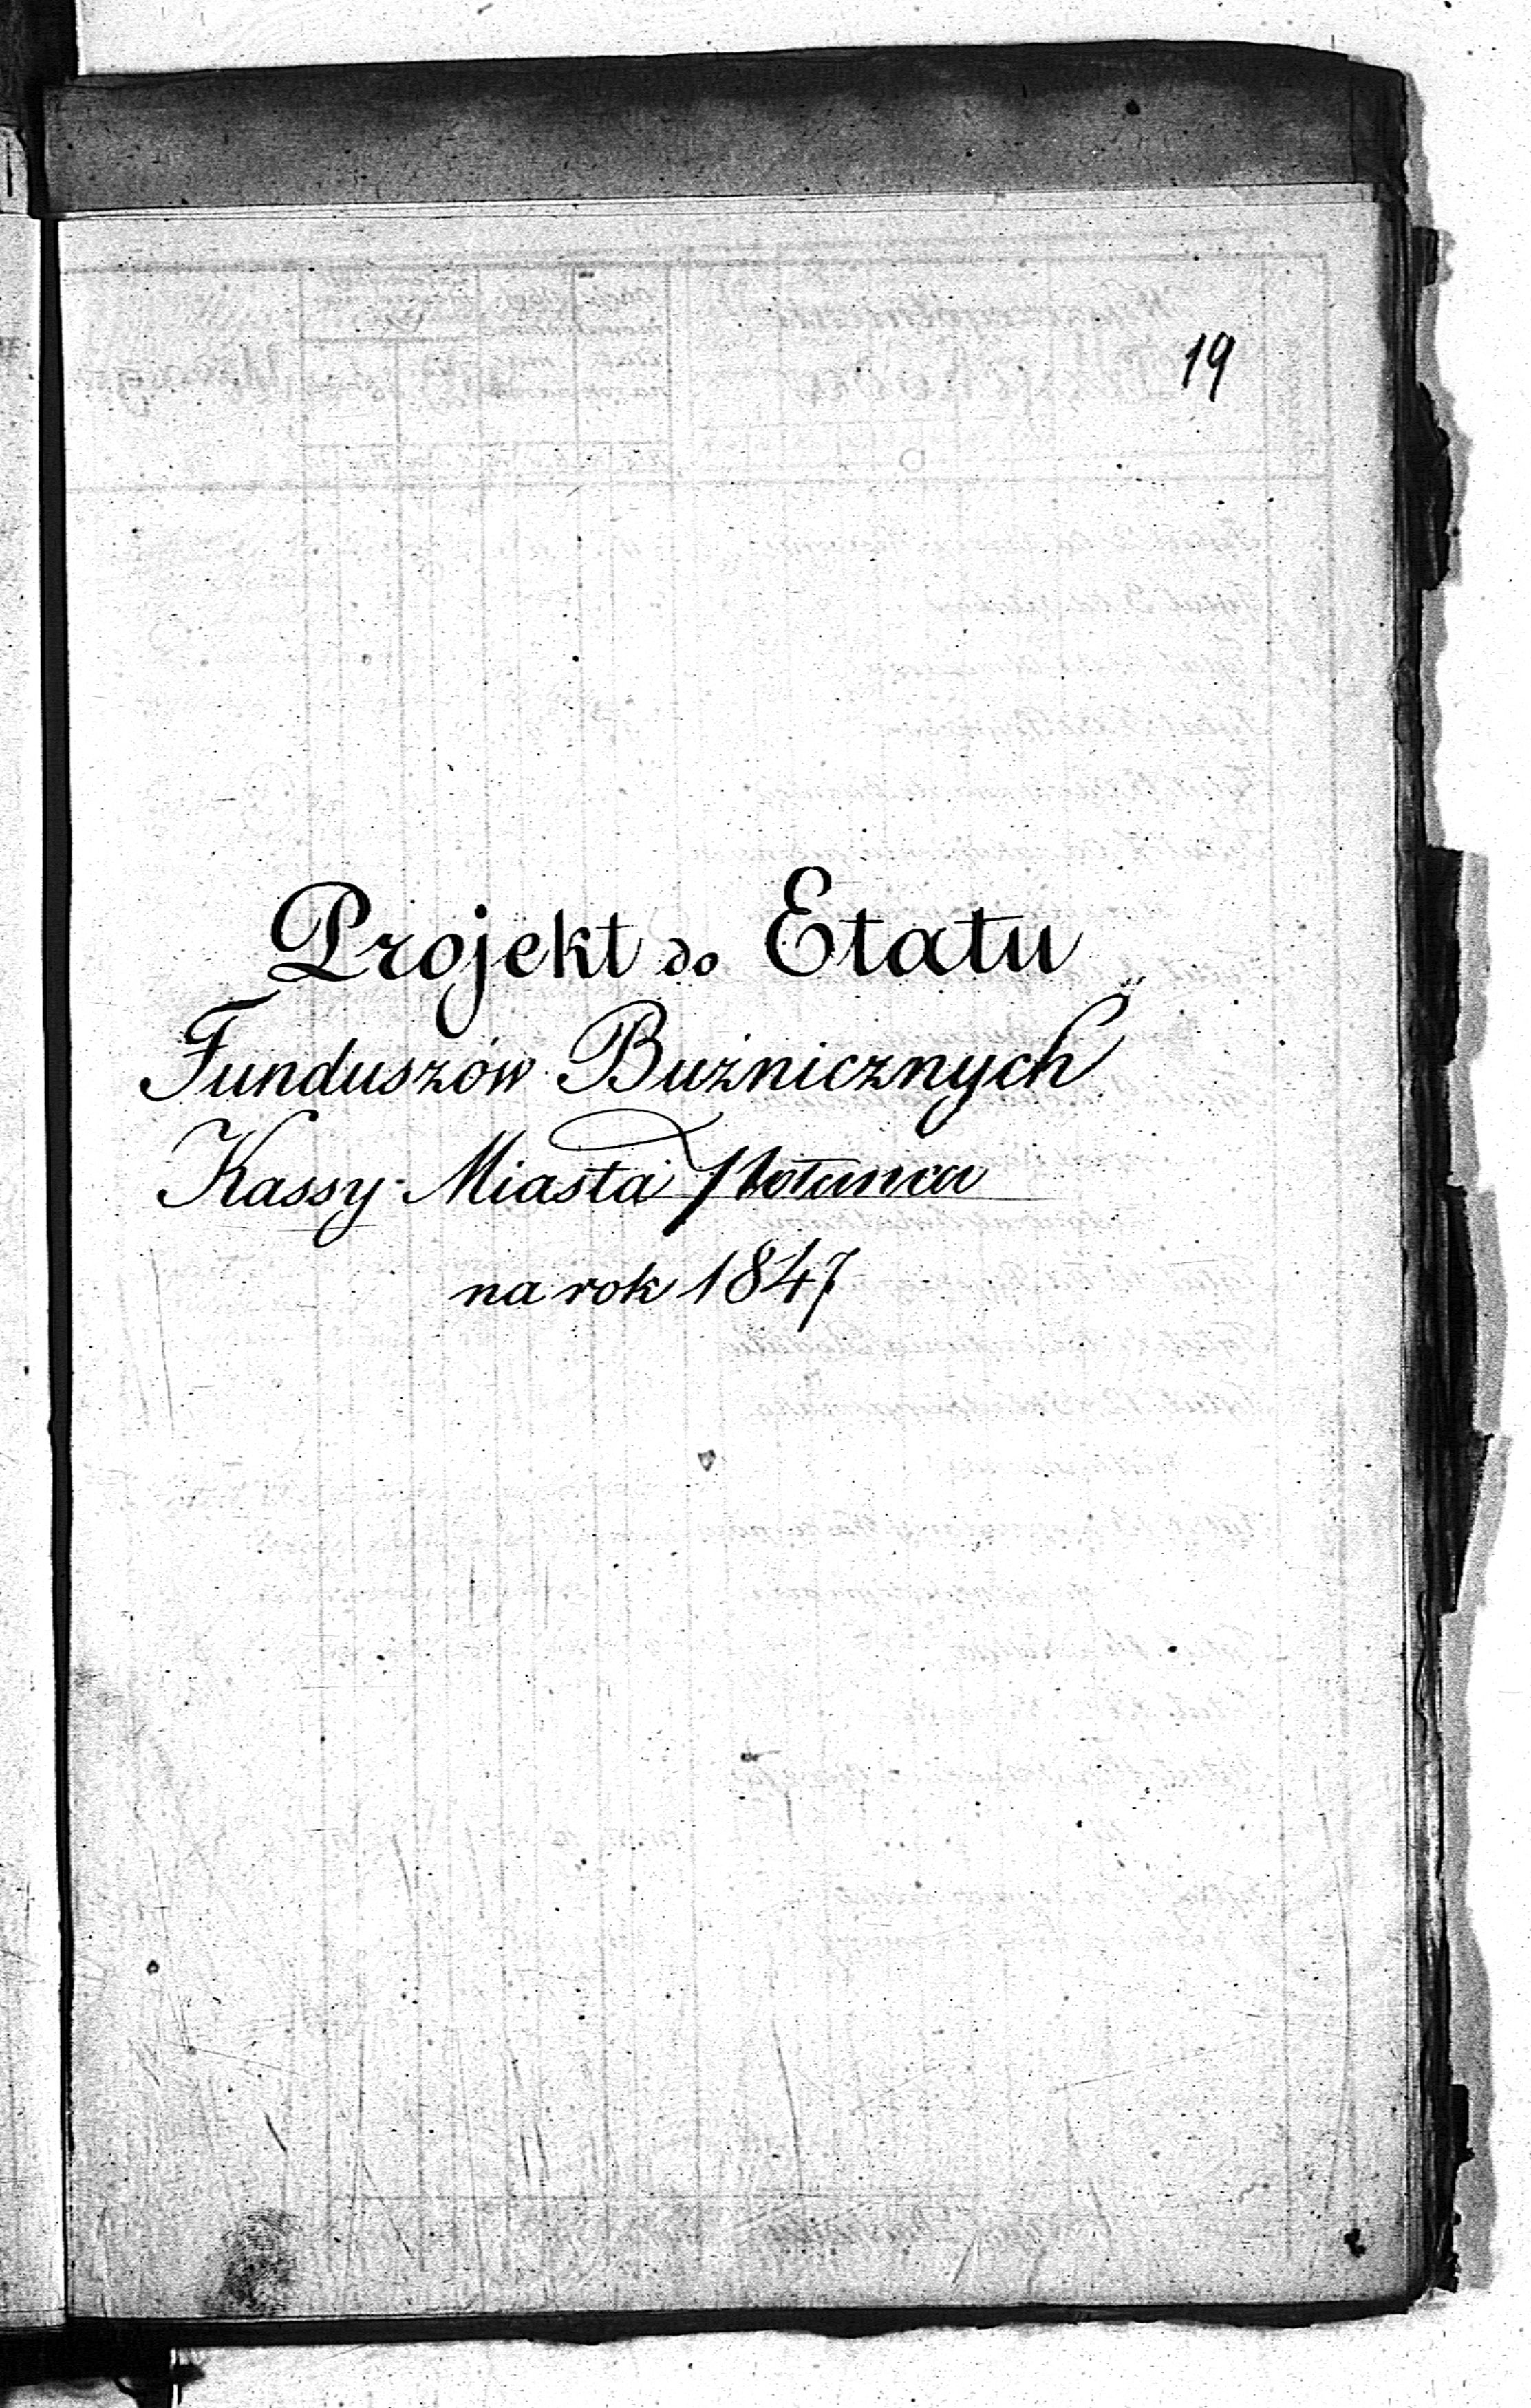 19
Projekt do Etatu
Funduszów Bużnicznych
Kassy Miasta
na rok 1847